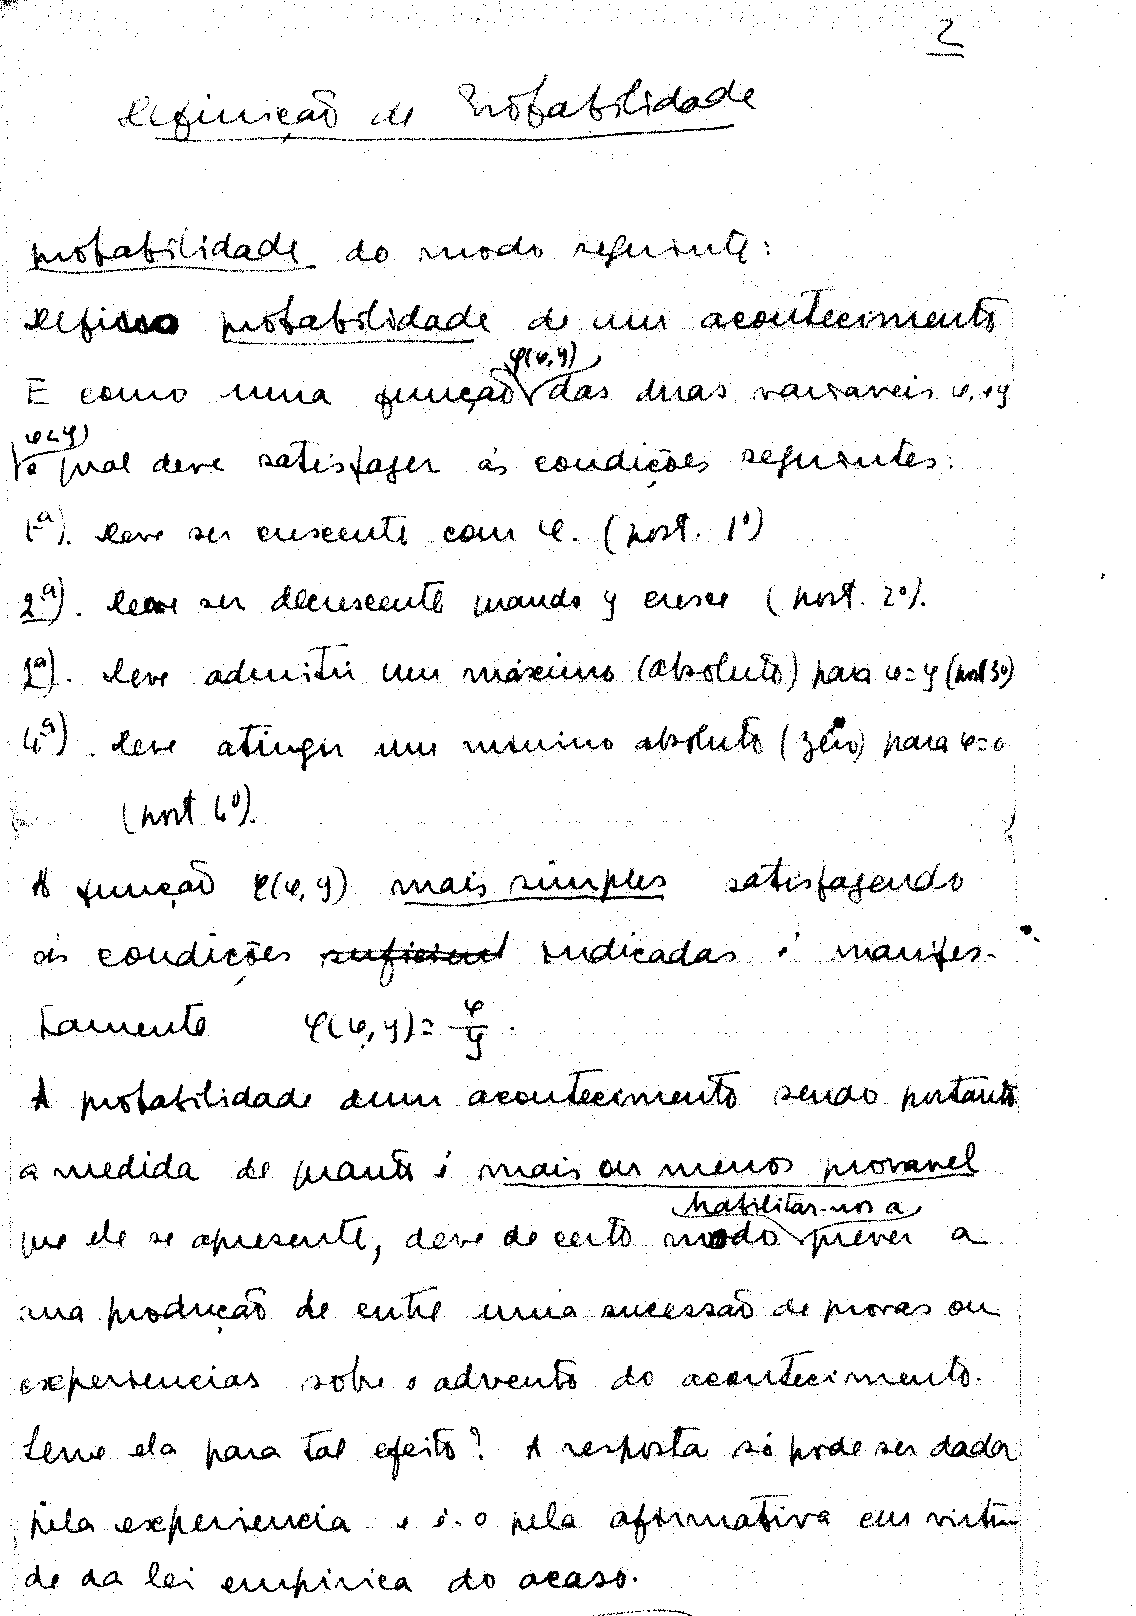 2
Definição de Probabilidade
probabilidade do modo seguinte:
Defino probabilidade de um acontecimento
φ(φ,y)
E como uma função das duas variaveis φ, y
φ<y)
a qual deve satisfazer ás condições seguintes:
1ª). deve ser crescente com φ. (post. 1º)
2ª). deve ser decrescente quando y cresce (post. 2º).
3ª). deve admitir um máximo (absoluto) para φ=y (post 3º)
4ª). deve atingir um minimo absoluto (zero) para φ=0
(post 4º).
A função φ(φ,y) mais simples satisfazendo
ás condições indicadas é manifes-
tamente φ(φ,y)= φ/y.
A probabilidade dum acontecimento sendo portanto
a medida de quanto é mais ou menos provavel
habilitar-nos a
que ele se apresente, deve de certo modo prever a
sua produção de entre uma sucessão de provas ou
experiencias sobre o advento do acontecimento.
Serve ela para tal efeito? A resposta só pode ser dada
pela experiencia e é-o pela afirmativa em virtu-
de da lei empirica do acaso.